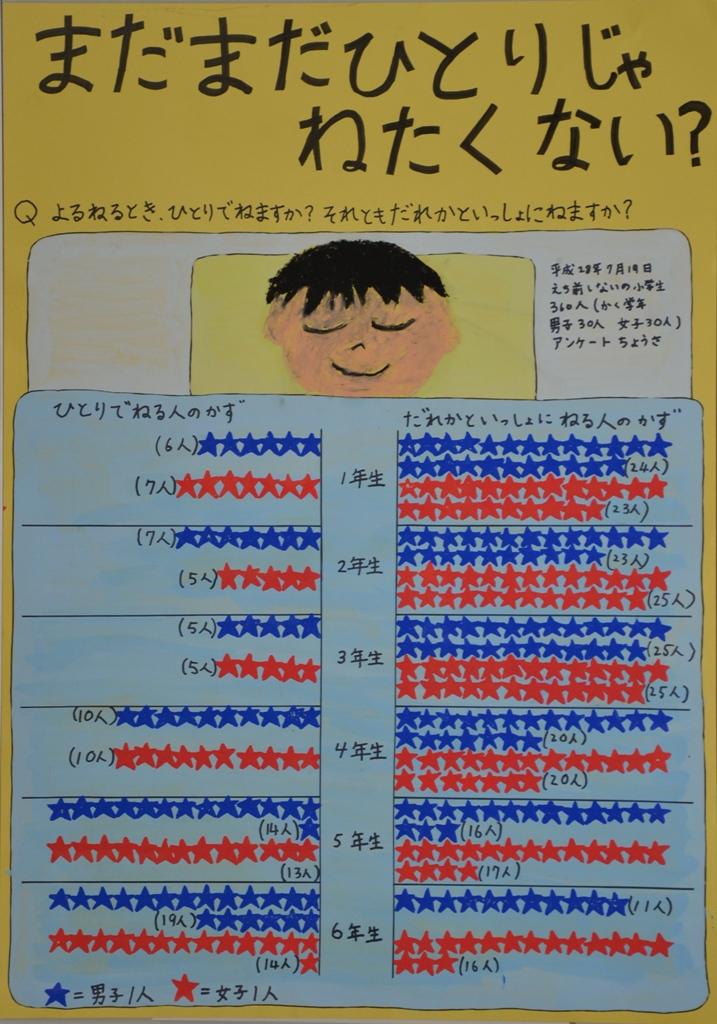 まだまだひとりじゃ
ねたくない?
Q よるねるとき、ひとりでねますか? それともだれかといっしょにねますか?
平成28年7月19日
えち前しないの小学生
360人(かく学年
男子30人 女子30人)
アンケート ちょうさ
ひとりでねる人のかず
だれかといっしょに ねる人のかず
(6人)
(7人)
1年生
(24人)
(23人)
(7人)
(5人)
2年生
(23人)
(25人)
(5人)
(5人)
3年生
(25人)
(25人)
(10人)
(10人)
4年生
(20人)
(20人)
(14人)
(13人)
5年生
(16人)
(17人)
(19人)
(14人)
6年生
(11人)
(16人)
★=男子1人 ★=女子1人